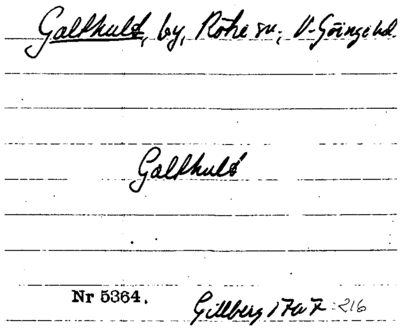 Galthult, by, Röke sn, V-Göinge hd.
Galthult
Nr 5364.
Gillberg 1767:216